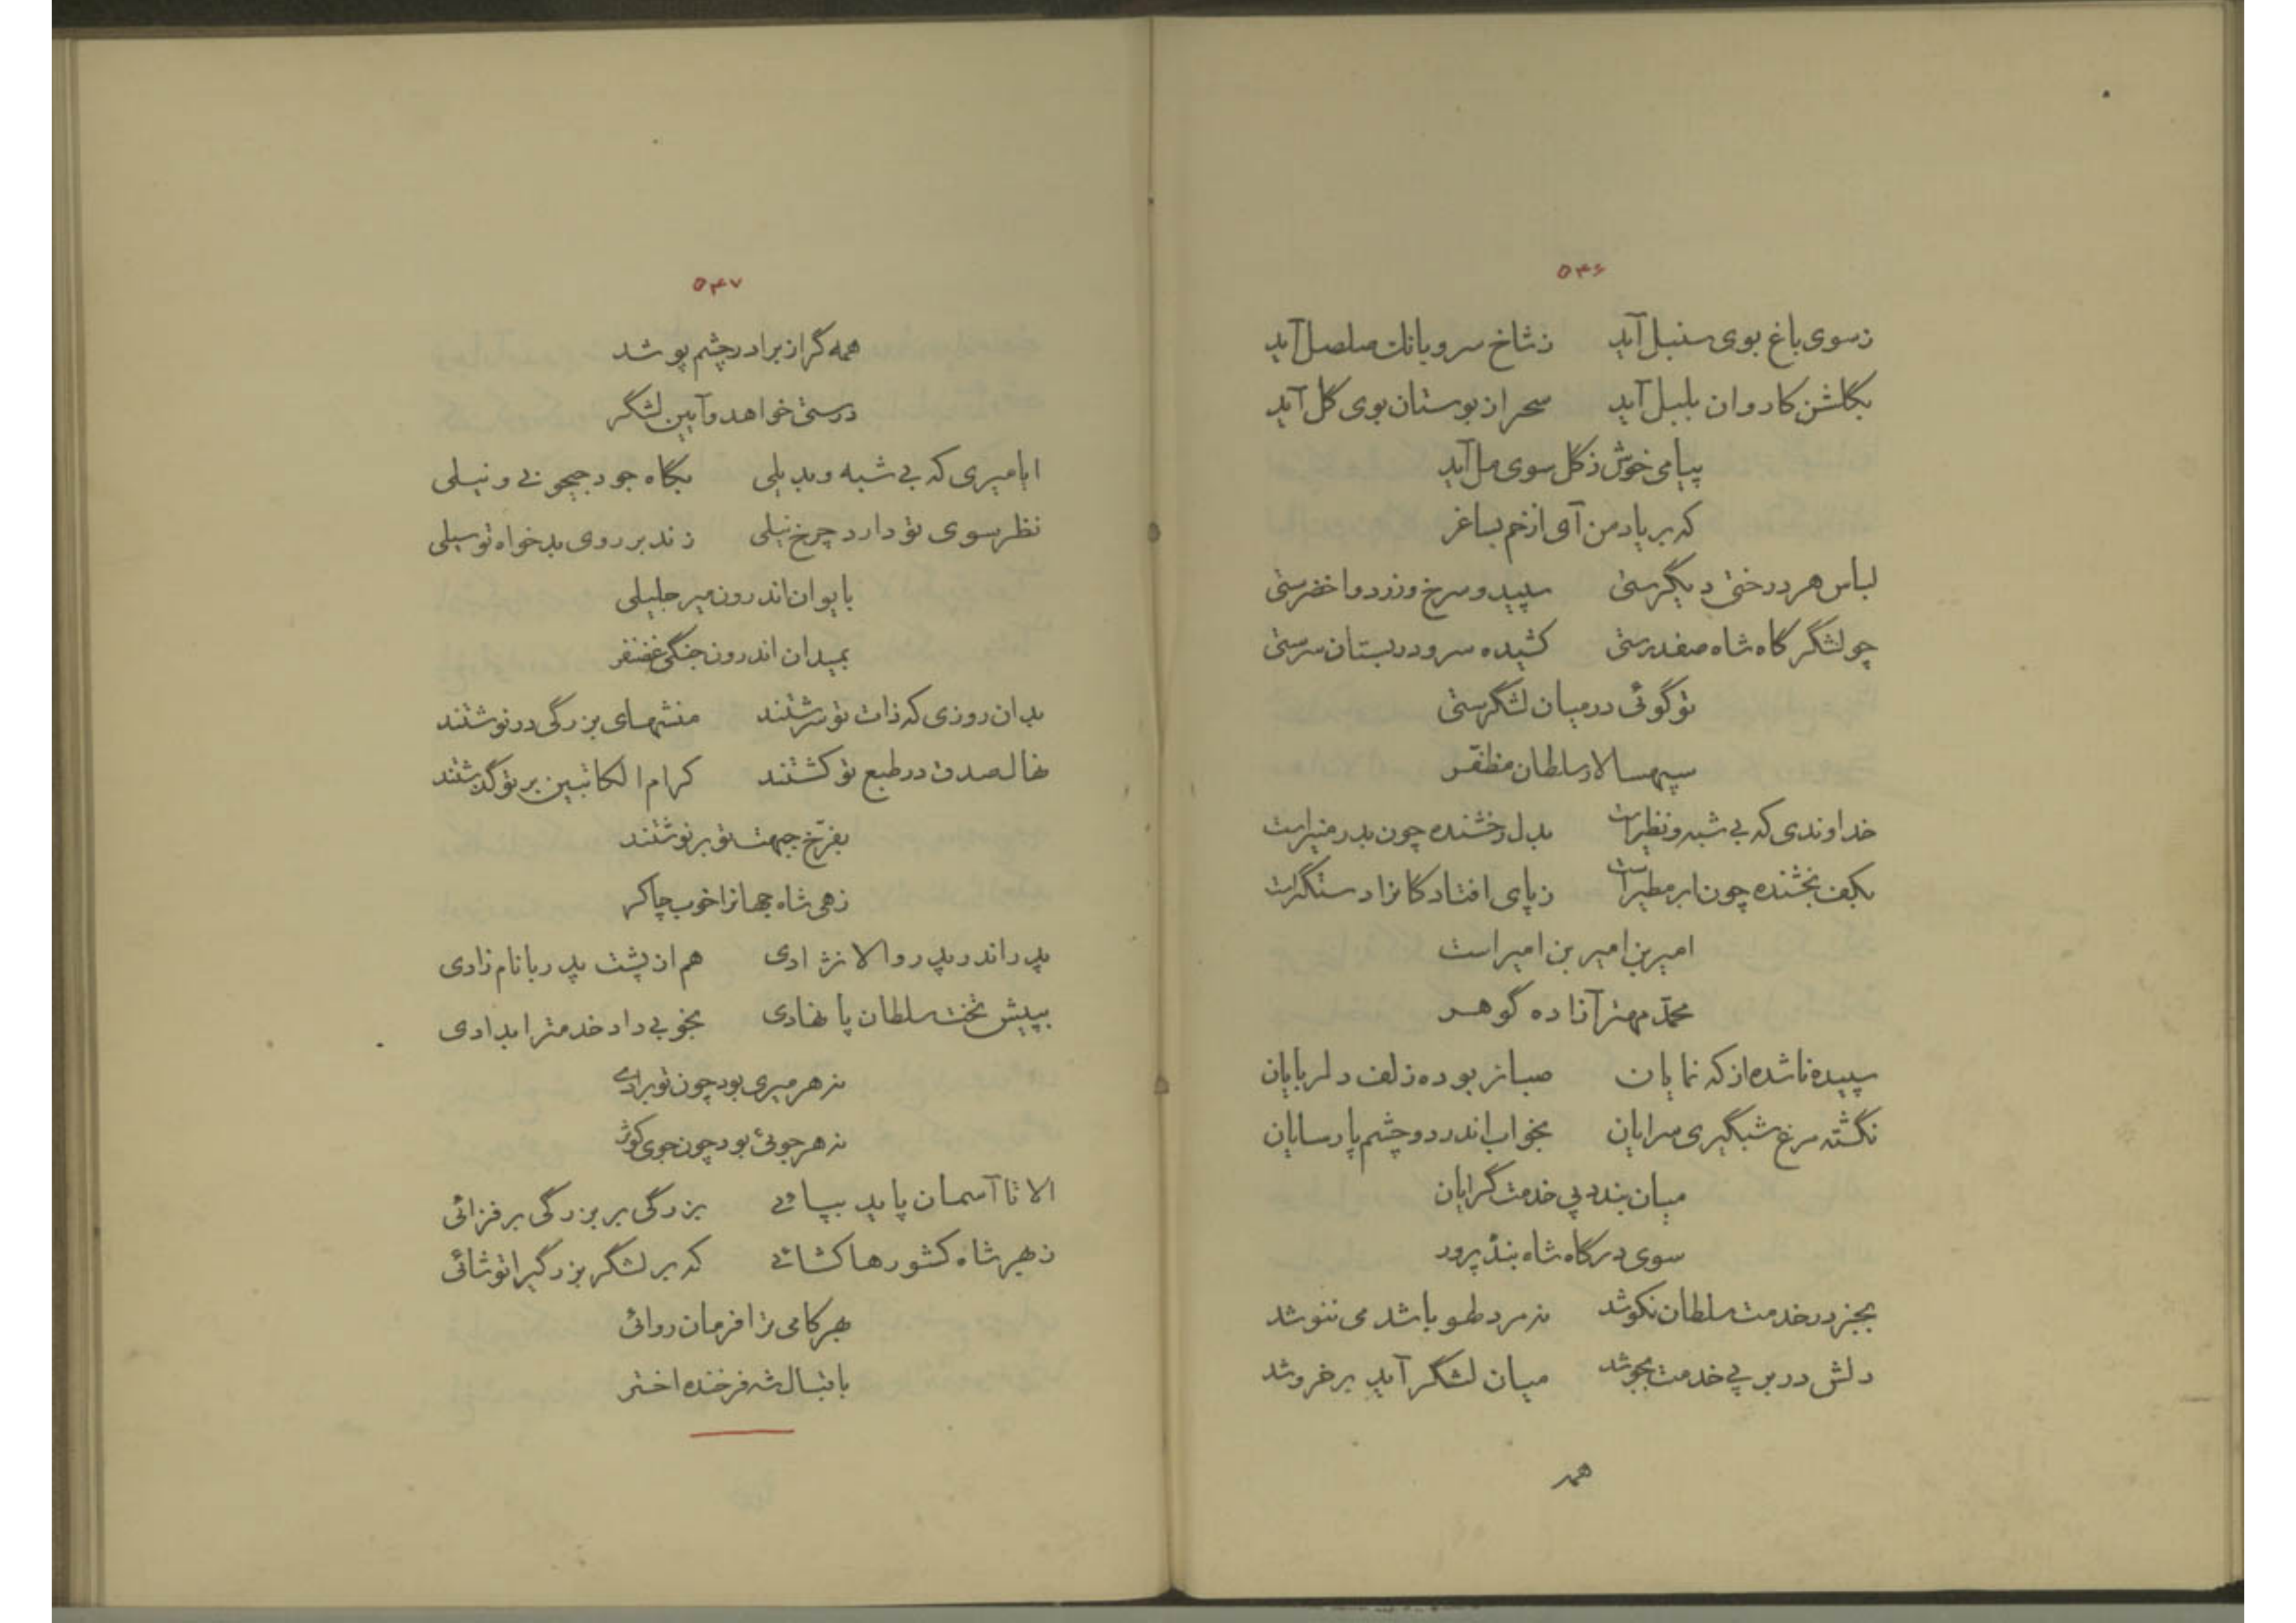 ۵۴۶
ز سوی باغ بوی سنبل آید ز شاخ سرو بانك صلصل آید
بگلشن کاروان بلبل آید سحر از بوستان بوی گل آید
پیامی خوش ز گل سوی مل آید
که بر یاد من آی از خم بساغر
لباس هر درختی دیگرستی سپید و سرخ و زرد و اخضرستی
چو لشگرگاه شاه صفدرستی کشیده سرو در بستان سرستی
تو گوئی در میان لشگرستی
سپهسالار سلطان مظفّر
خداوندی که بی شبه و نظیر است بدل رخشنده چون بدر منیر است
بکف بخشنده چون ابر مطیر است ز پای افتادکانرا دستگیر است
امیر بن امیر بن امیر است
محمّد مهتر آزاده گوهر
سپیده ناشده از که نمایان صبا نربوده زلف دلربایان
نگشته مرغ شبگیری سرایان بخواب اندر دو چشم پارسایان
میان بندد پی خدمت گرایان
سوی درگاه شاه بنده پرور
بجز در خدمت سلطان نکوشد نه مرد طو باشد می ننوشد
دلش در بر پی خدمت بجوشد میان لشگر آید بر خروشد
همه
۵۴۷
همه گر از برادر چشم پوشد
درستی خواهد و آیین لشگر
ایا میری که بی شبه و بدیلی بگاه جود جیحونی و نیلی
نظر سوی تو دارد چرخ نیلی زند بر روی بدخواه تو سیلی
بایوان اندرون میر جلیلی
بمیدان اندرون جنگی غضنفر
بدان روزی که ذات تو سرشتند منشهای بزرگی در نوشتند
نهال صدق در طبع تو کشتند کرام الکاتبین بر تو گذشتند
بفرّخ جبهت تو بر نوشتند
زهی شاه جهانرا خوب چاکر
پدر اندر پدر والا نژادی هم از پشت پدر با نام زادی
بپیش تخت سلطان پا نهادی بخوبی داد خدمترا بدادی
نه هر میری بود چون تو برادی
نه هر جوئی بود چون جوی کوثر
الا تا آسمان پاید بپائی بزرگی بر بزرگی بر فزائی
ز بهر شاه کشورها کشائی که بر لشگر بزرگیرا تو شائی
بهر کامی ترا فرمان روائی
باقبال شه فرخنده اختر